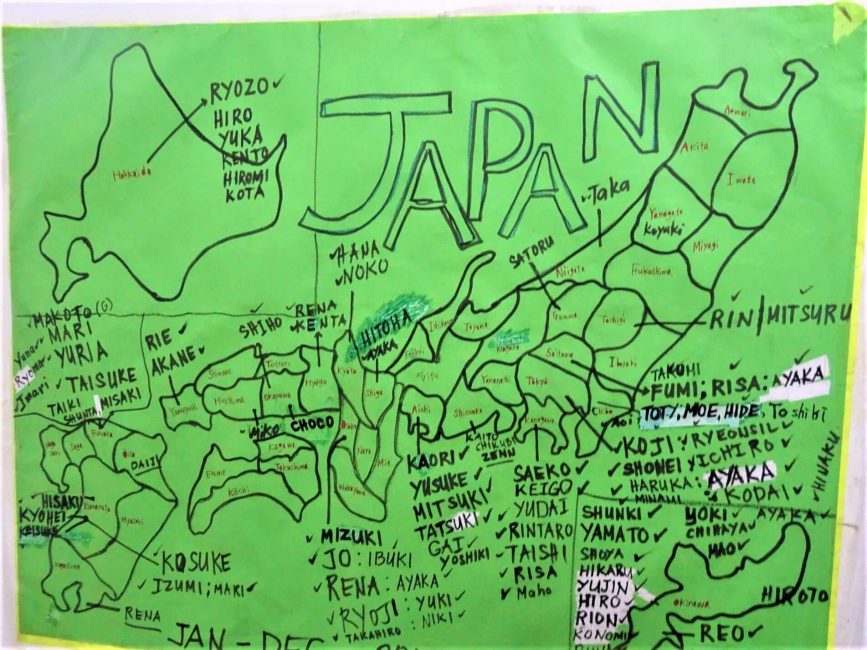 JAPAN
RYOZO ✓
HIRO
YUKA
KENTO
HIROMI
KOTA
Hokkaido
Aomori
Akita
Iwate
Yamagata
Koyuki
Miyagi
Fukushima
✓ Taka
Niigata
SATORU
✓ HANA
✓ NOKO
HITOHA
AYAKA
RENA
KENTA
SHIHO
RIE ✓
AKANE ✓
MAKOTO (G)
MARI
YURIA
Ryoma
✓ TAISUKE
TAIKI
SHUNTA
MISAKI
Toyama
Gunma
Tochigi
RIN/MITSURU
Ibaraki
Saitama
Gifu
Yamanashi
Tokyo
Chiba
Aichi
Shizuoka
Kanagawa
Kyoto
Shiga
Nara
Mie
Wakayama
Hyogo
Tottori
Okayama
Yamaguchi
CHOCO
Kagawa
Ehime
Kochi
Saga
DAIJI
TAKUHI
FUMI; RISA: AYAKA
TOTY, MOE, HIDE, Toshiki
Aoi
KOJI
RYEOUSIL ✓
SHOHEI
YICHIRO ✓
HARUKA: AYAKA ✓
MINAMI
KODAI ✓
KAITO
CHIKUBI
LENN
KAORI ✓
YUSUKE ✓
MITSUKI ✓
TATSUKI
GAI
YOSHIKI
SAEKO ✓
KEIGO ✓
YUDAI
✓ RINTARO
✓ TAISHI
✓ RISA
✓ Maho
✓ MIZUKI
✓ JO: IBUKI
✓ RENA: AYAKA ✓
✓ RYOJI: YUKI ✓
✓ TAKAHIRO: NIKI ✓
HISAKI
KYOHEI
KEISUKE
Miyazaki
KOSUKE
✓ IZUMI; MARI ✓
RENA
SHUNKI ✓
YAMATO ✓
SHOYA
HIKARU
YUJIN
HIRO
RION
KONOMI
YOKI ✓
AYAKA ✓
CHIHAYA
MAO ✓
Okinawa
HIROTO
REO ✓
JAN - DEC